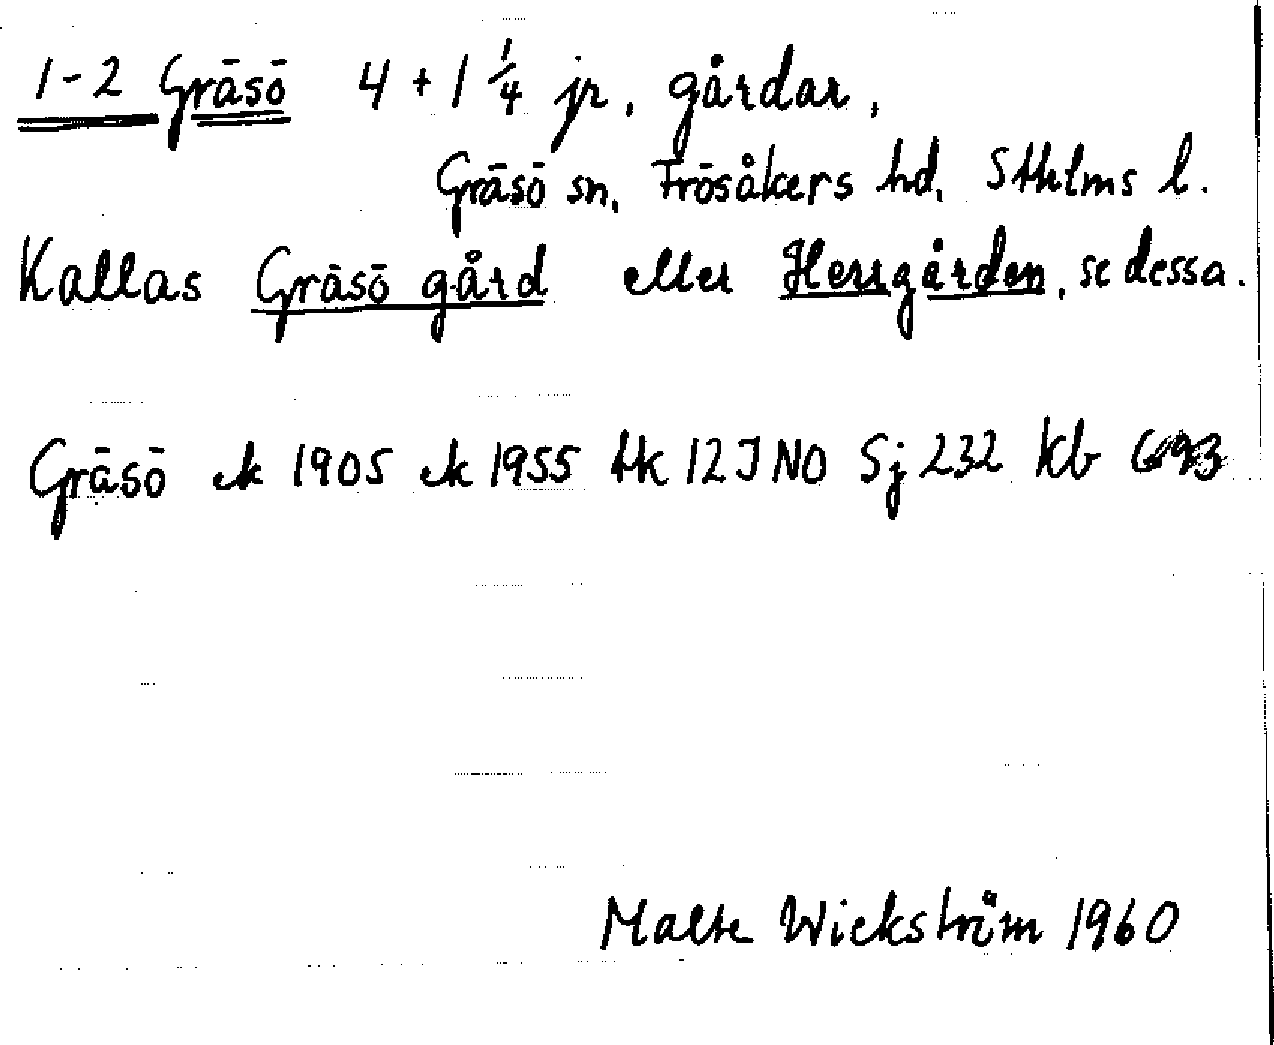 1-2 Gräsö 4 + 1 1/4 jr, gårdar,
Gräsö sn, Frösåkers hd, Sthlms l.
Kallas Gräsö gård eller Herrgården, se dessa.
Gräsö ek 1905 ek 1955 tk 12 I NO Sj 232 kb
Malte Wickström 1960